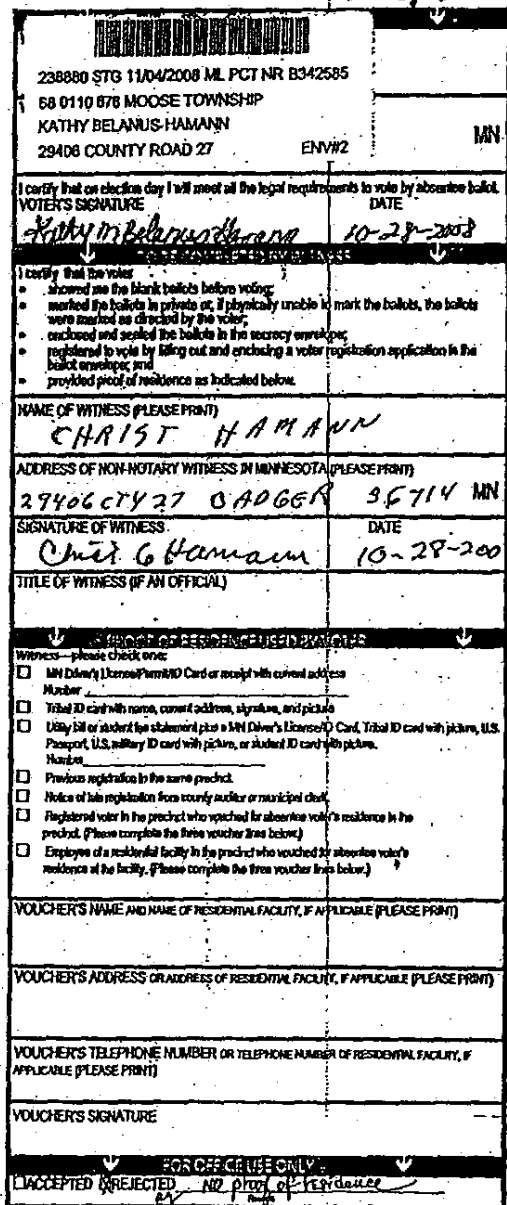 238880 STG 11/04/2008 ML PCT NR B342585
68 0110 678 MOOSE TOWNSHIP
KATHY BELANUS-HAMANN
29406 COUNTY ROAD 27 ENV#2
MN
I certify that on election day I will meet all the legal requirements to vote by absentee ballot.
VOTER'S SIGNATURE DATE
Kathy M Belanus Hamann 10-28-2008
I certify that the voter
• showed me the blank ballots before voting;
• marked the ballots in private or, if physically unable to mark the ballots, the ballots
were marked as directed by the voter;
• enclosed and sealed the ballots in the secrecy envelope;
• registered to vote by filling out and enclosing a voter registration application in the
ballot envelope; and
• provided proof of residence as indicated below.
NAME OF WITNESS (PLEASE PRINT)
CHRIST HAMANN
ADDRESS OF NON-NOTARY WITNESS IN MINNESOTA (PLEASE PRINT)
29406 CTY 27 BADGER 56714 MN
SIGNATURE OF WITNESS DATE
Christ G Hamann 10-28-200
TITLE OF WITNESS (IF AN OFFICIAL)
PROOF OF RESIDENCE USED BY VOTER
Witness—please check one:
☐ MN Driver's License/Permit/ID Card or receipt with current address
Number
☐ Tribal ID card with name, current address, signature, and picture
☐ Utility bill or student fee statement plus a MN Driver's License/ID Card, Tribal ID card with picture, U.S.
Passport, U.S. military ID card with picture, or student ID card with picture.
Number
☐ Previous registration in the same precinct
☐ Notice of late registration from county auditor or municipal clerk
☐ Registered voter in the precinct who vouched for absentee voter's residence in the
precinct. (Please complete the three voucher lines below.)
☐ Employee of a residential facility in the precinct who vouched for absentee voter's
residence at the facility. (Please complete the three voucher lines below.)
VOUCHER'S NAME AND NAME OF RESIDENTIAL FACILITY, IF APPLICABLE (PLEASE PRINT)
VOUCHER'S ADDRESS OR ADDRESS OF RESIDENTIAL FACILITY, IF APPLICABLE (PLEASE PRINT)
VOUCHER'S TELEPHONE NUMBER OR TELEPHONE NUMBER OF RESIDENTIAL FACILITY, IF
APPLICABLE (PLEASE PRINT)
VOUCHER'S SIGNATURE
FOR OFFICE USE ONLY
☐ACCEPTED ☒REJECTED NO proof of residence